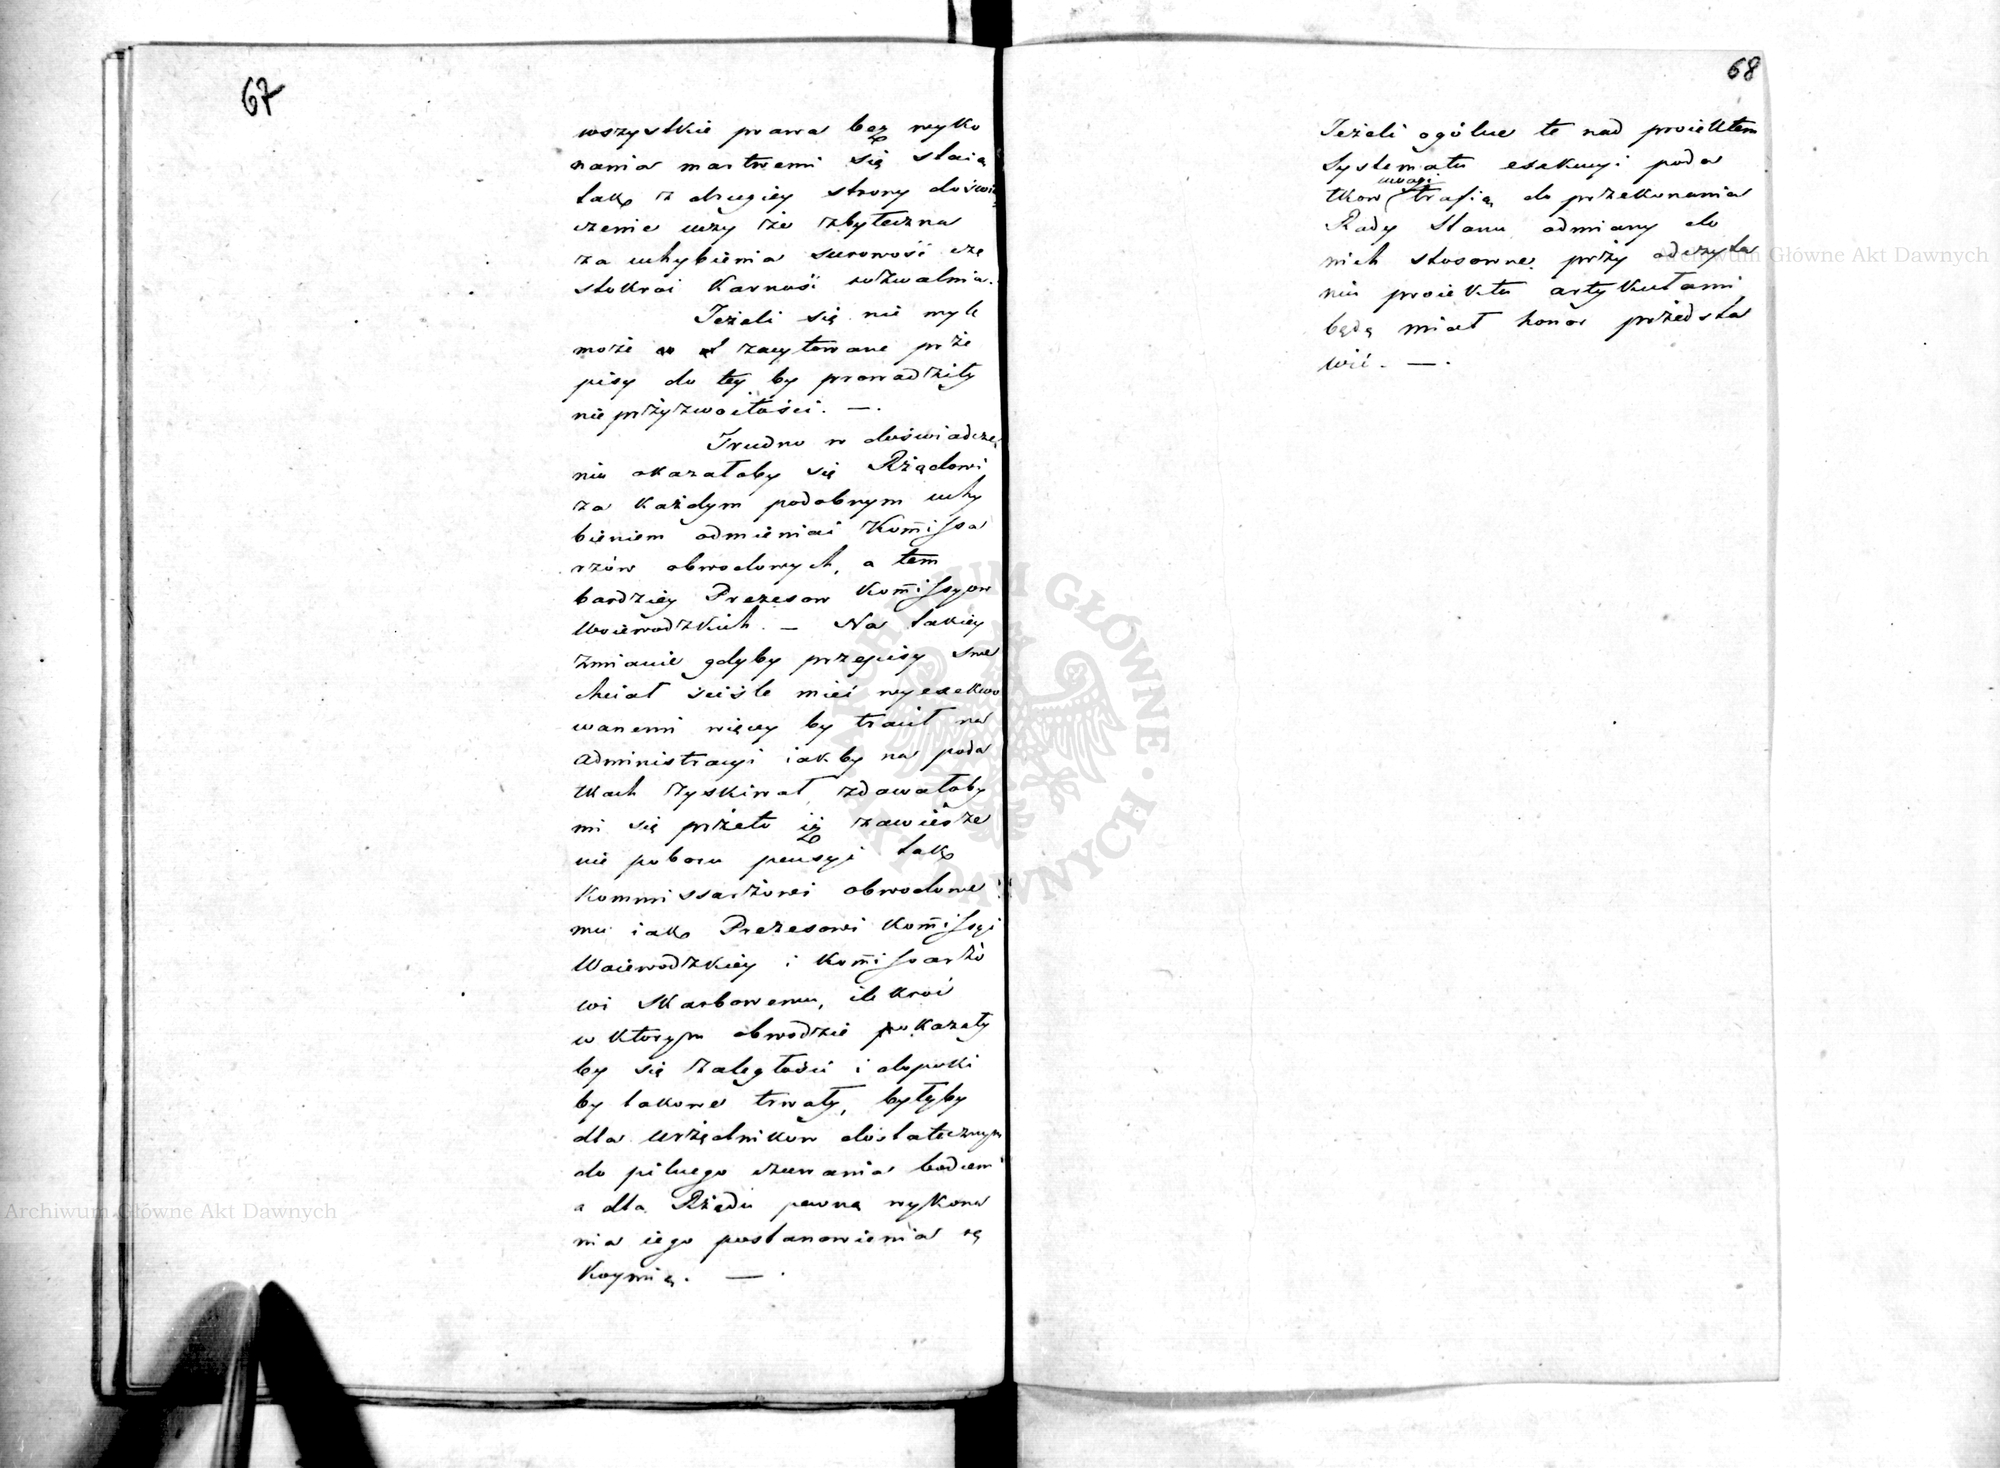 67
wszystkie prawa bez wyko
nania martwemi się staią
tak z drugiey strony doświ
czenie uczy że zbyteczna
za uchybienia surowość czę
stokroć karność rozwalnia.
Jeżeli się nie mylę
może zacytowane prze
pisy do tey by prowadziły
nieprzyzwoitości. —.
Trudno w doświadcze
niu okazałoby się Rządowi
za każdym podobnym uchy
bieniem odmieniać Kom̄issa
rzów obwodowych, a tem
bardziey Prezesow Kom̄issyow
Woiewodzkich. — Na takiey
zmianie gdyby przepisy swe
chciał ściśle mieć wyexekwo
wanemi więcey by tracił na
administracyi iak by na poda
tkach zyskiwał, zdawałoby
mi się przeto iż zawiesze
nie poboru pensyi tak
Kommissarzowi obwodowe
mu iak Prezesowi Kom̄issyi
Woiewodzkiey i Kom̄issarzo
wi Skarbowemu, ile kroć
w ktorym obwodzie pokazały
by się zaległości i dopoki
by takowe trwały, byłyby
dla urzędnikow dostatecznym
do pilnego czuwania bodzcem
a dla Rządu pewną wykona
nia iego postanowienia rę
koymią. — .
68
Jeżeli ogólne te nad proiektem
systematu exekucyi poda
tkow uwagi trafią do przekonania
Rady Stanu, odmiany do
nich stosowne, przy odczyta
niu proiektu artykułami,
będę miał honor przedsta
wić. — .
Archiwum Główne Akt Dawnych
Archiwum Główne Akt Dawnych
ARCHIWUM GŁÓWNE AKT DAWNYCH